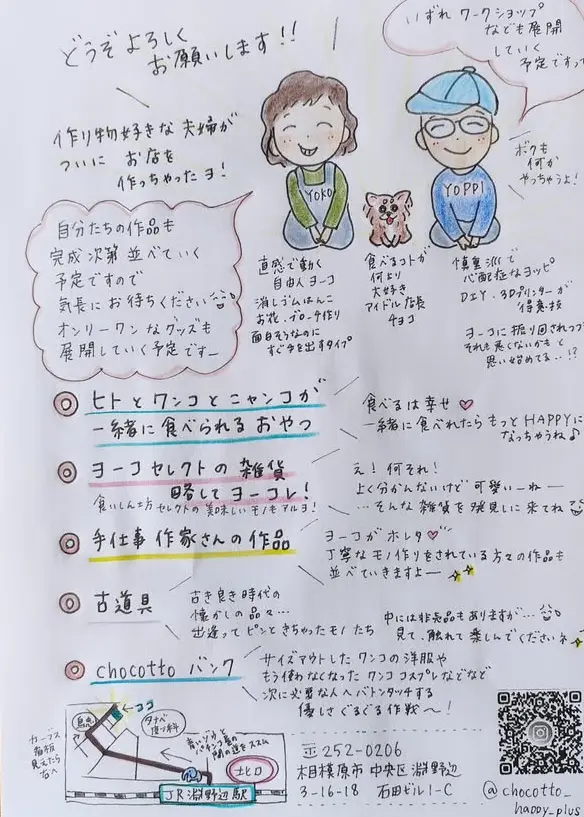 どうぞよろしく
お願いします!!
いずれ ワークショップ
なども展開
していく
予定ですっ
作り物好きな夫婦が
ついに お店を
作っちゃったヨ!
ボクも
何か
やっちゃうよ!
YOKO
YOPPI
自分たちの作品も
完成次第 並べていく
予定ですので
気長にお待ちください
オンリーワンなグッズも
展開していく予定ですー
直感で動く
自由人 ヨーコ
消しゴムはんこ
お花、ブローチ作り
面白そうなのに
すぐ手を出すタイプ
食べるコトが
何より
大好き
アイドル店長
チョコ
慎重派で
心配症なヨッピ
DIY・3Dプリンターが
得意技
ヨーコに振り回されつつ
それも悪くないかもと
思い始めてる..!?
ヒトとワンコとニャンコが
一緒に食べられるおやつ
食べるは幸せ♡
一緒に食べれたら もっとHAPPYに
なっちゃうね♪
ヨーコセレクトの雑貨
略してヨーコレ!
食いしん坊セレクトの美味しいモノもアルヨ!
え! 何それ!
よく分かんないけど 可愛いーねー
...そんな雑貨を発見しに来てね
手仕事作家さんの作品
ヨーコがホレタ♡
丁寧なモノ作りをされている方々の作品も
並べていきますよー
古道具
古き良き時代の
懐かしの品々...
出逢ってピンときちゃったモノたち
中には非売品もありますが...
見て、触れて楽しんでくださいネ
chocotto バンク
サイズアウトしたワンコの洋服や
もう使わなくなったワンココスプレなどなど
次に必要な人へバトンタッチする
優しさぐるぐる作戦〜!
←ココ
タナベ
カーブス
看板
見えたら
右へ
間の道をススム
JR淵野辺駅
北口
〒252-0206
相模原市 中央区 淵野辺
3-16-18 石田ビル1-C
@chocotto_
happy_plus